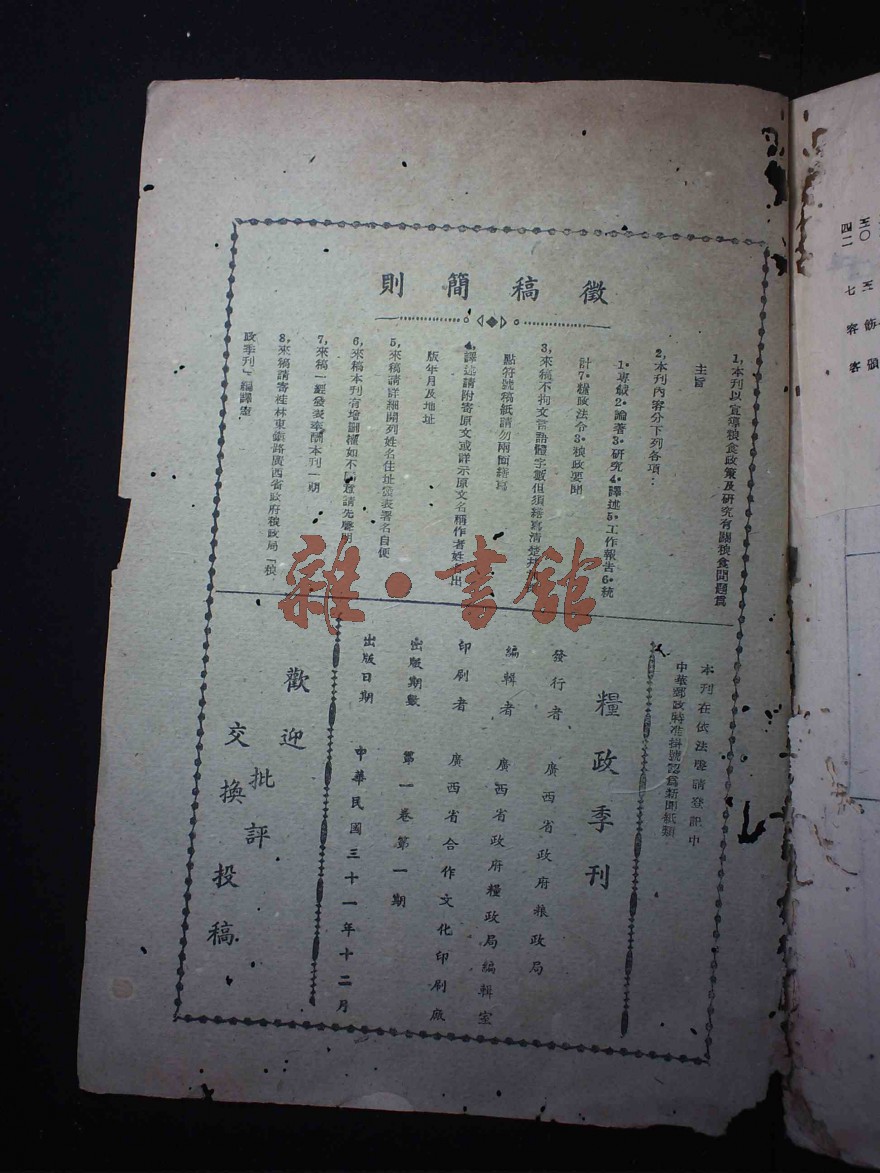 徵稿簡則
1,本刊以宣導粮食政策及研究有關粮食問題為
主旨
2,本刊內容分下列各項：
1•專載2•論著3•研究4•譯述5•工作報告6•統
計7•糧政法令8•粮政要聞
3,來稿不拘文言語體字數但須繕寫清楚
點符號稿紙請勿兩面繕寫
4,譯述請附寄原文或詳示原文名稱作者姓名出
版年月及地址
5,來稿請詳細開列姓名住址發表署名自便
6,來稿本刊有增刪權如不同意請先聲明
7,來稿一經發表奉酬本刊一期
8,來稿請寄桂林東鎮路廣西省政府粮政局「粮
政季刊」編譯室
本刊在依法聲請登記中
中華郵政特准掛號認為新聞紙類
糧政季刊
發行者 廣西省政府粮政局
編輯者 廣西省政府糧政局編輯室
印刷者 廣西省合作文化印刷廠
出版期數 第一卷第一期
出版日期 中華民國三十一年十二月
歡迎
批評
交換
投稿
雜•書館
五〇
四二
七
客